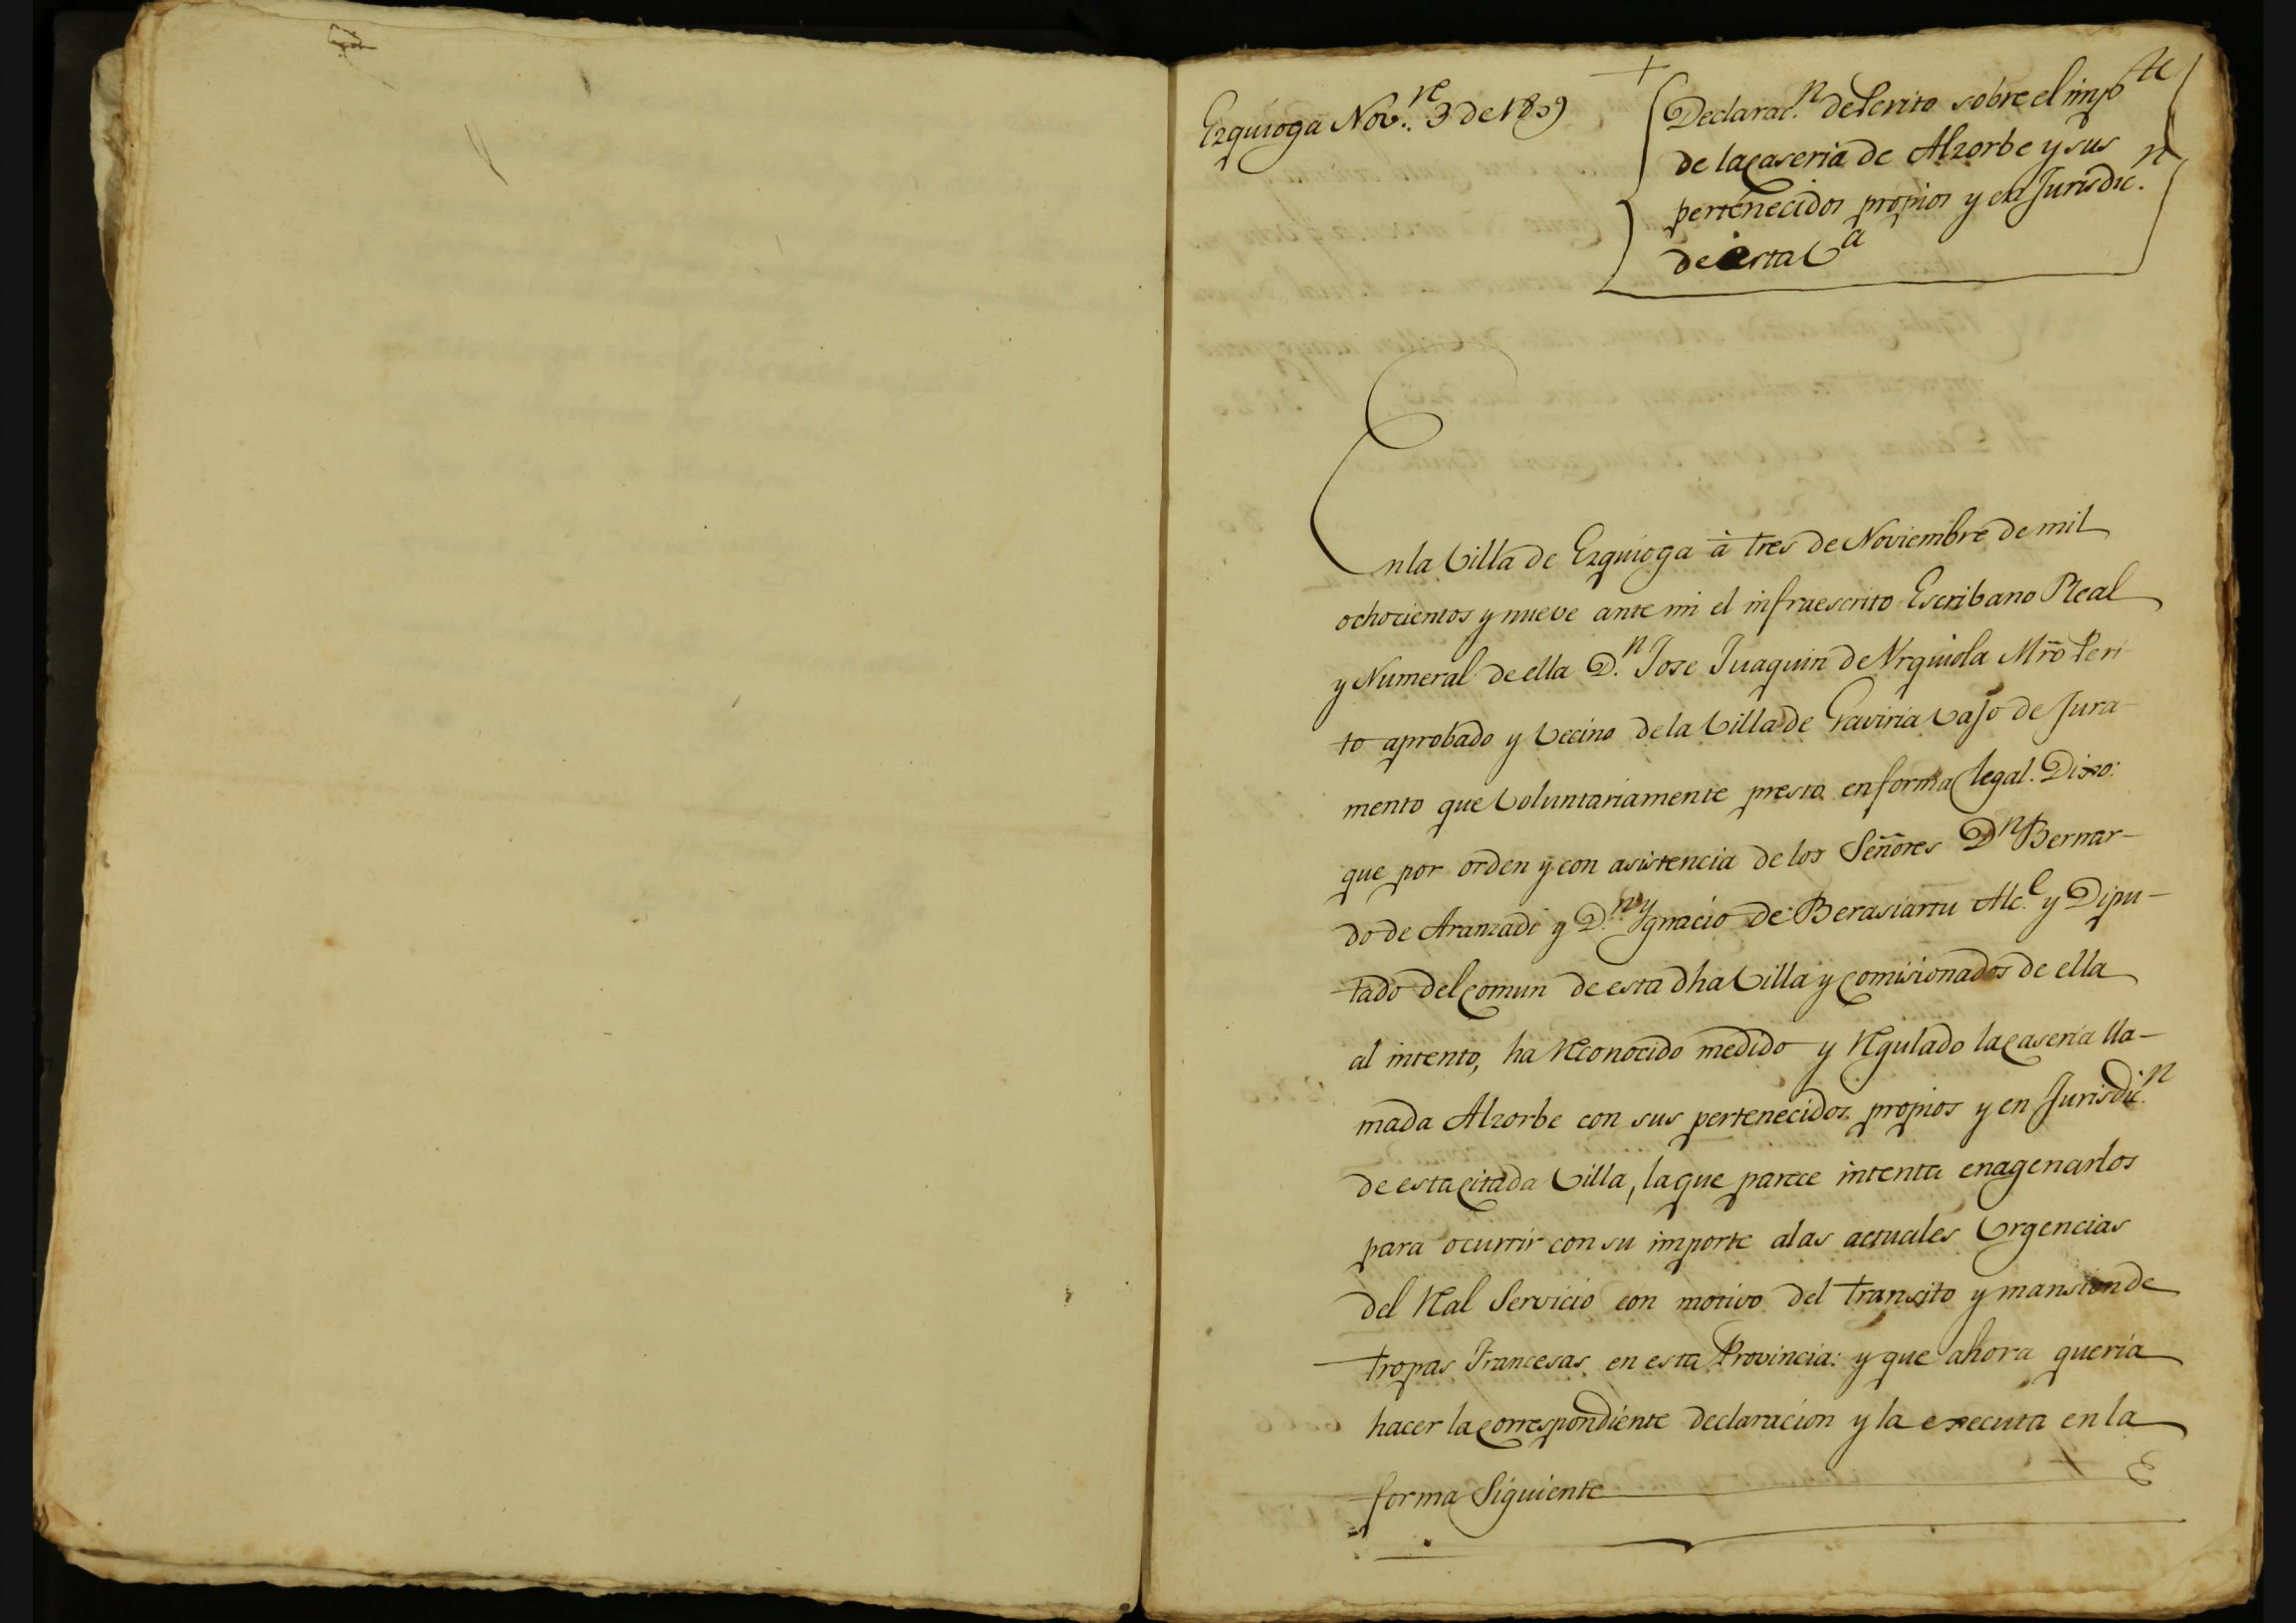 +
Ezquioga Nov.re 3 de 1809
Declarac.n de Perito sobre el impte
de la caseria de Alzorbe y sus
pertenecidos propios y en Jurisdic.n
de esta Va
En la Villa de Ezquioga à tres de Noviembre de mil
ochocientos y nueve ante mi el infraescrito Escribano Real
y Numeral de ella D.n Jose Juaquin de Vrquiola Mrõ Peri-
to aprobado y Vecino de la Villa de Gaviria vajo de Jura-
mento que Voluntariamente presto en forma legal. Dixo:
que por orden y con asistencia de los Señores Dn Bernar-
do de Aranzadi y D.n Ygnacio de Berasiartu Alc.e y Dipu-
tado del comun de esta dha Villa y comisionados de ella
al intento, ha Reconocido medido y Regulado la caseria lla-
mada Alzorbe con sus pertenecidos propios y en Jurisdic.n
de esta citada Villa, la que parece intenta enagenarlos
para ocurrir con su importe a las actuales Vrgencias
del Real Servicio con motivo del transito y mansion de
tropas Francesas en esta Provincia: y que ahora queria
hacer la correspondiente declaracion y la executa en la
forma Siguiente